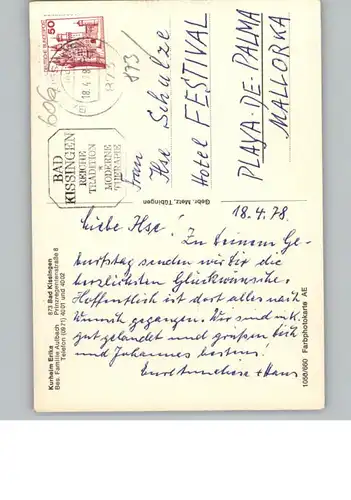 DEUTSCHE BUNDESPOST
50
18.4.78
873
BAD
KISSINGEN
REICHE
TRADITION
*
MODERNE
THERAPIE
873/
Frau
Ilse Schulze
Hotel FESTIVAL
PLAYA-DE-PALMA
MALLORKA
Gebr. Metz, Tübingen
18.4.78.
Liebe Ilse!
Zu Deinem Ge-
burtstag senden wir Dir die
herzlichsten Glückwünsche.
Hoffentlich ist dort alles nach
Wunsch gegangen. Wir sind
gut gelandet und grüßen Dich
und Johannes bestens!
+ Hans
Kurheim Erika
Bes. Familie Aulbach
873 Bad Kissingen
Prinzregentenstraße 8
Telefon (0971) 4001 und 4002
1056/660 Farbphotokarte AE